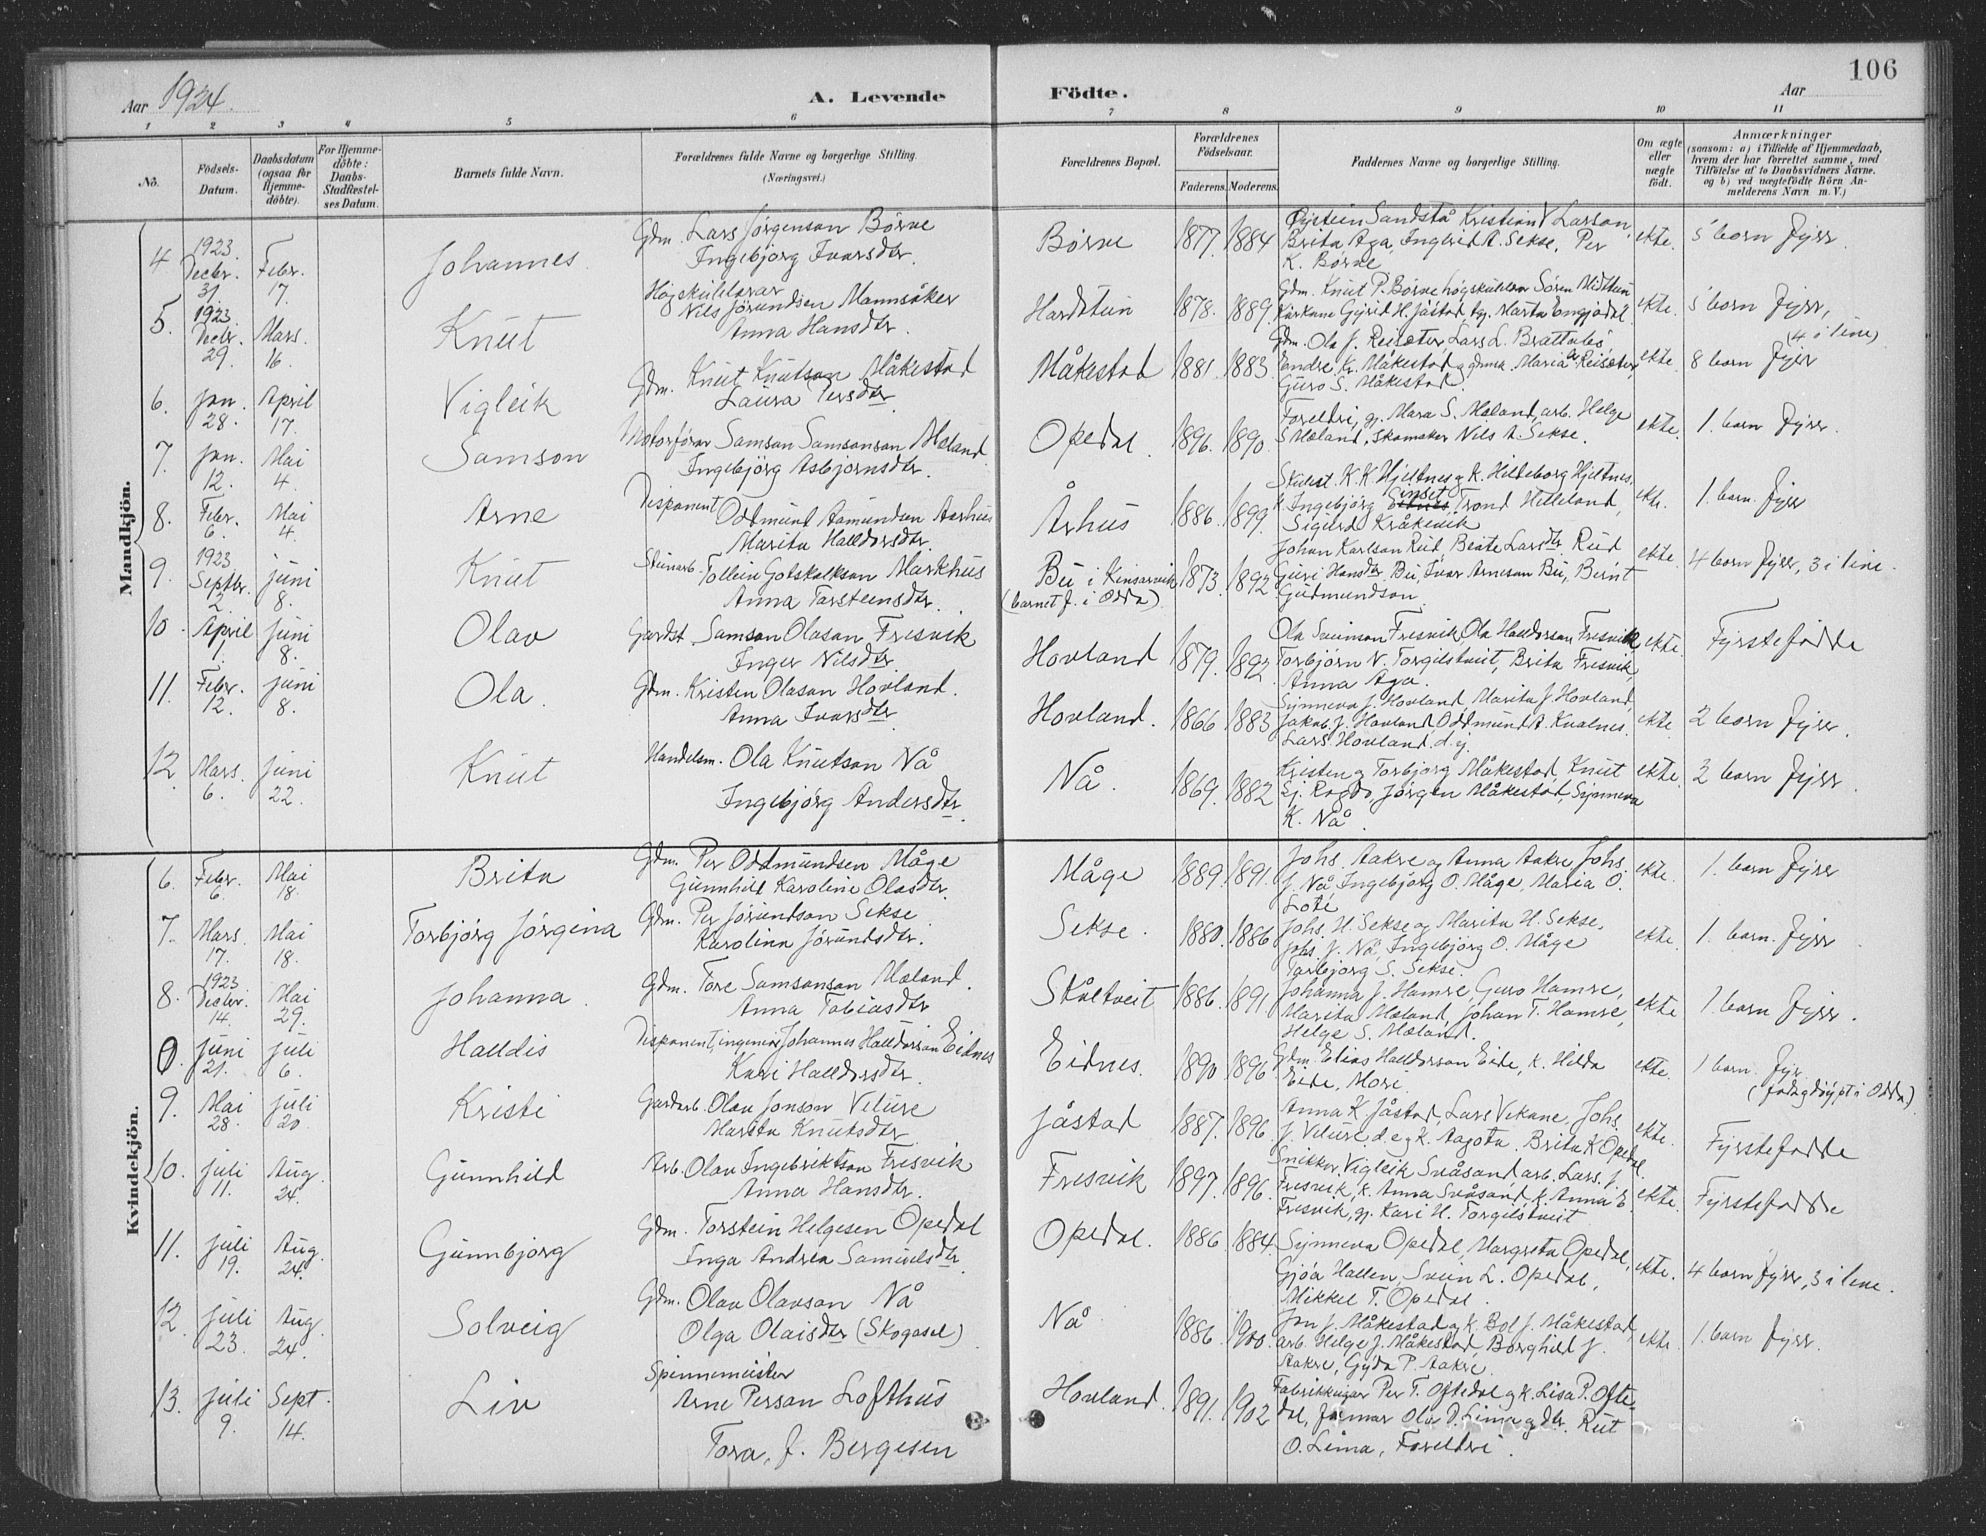 106
Aar 1924.
A. Levende Födte.
Aar
1 2 3 4 5 6 7 8 9 10 11
No.
Födsels-Datum.
Daabsdatum (ogsaa for Hjemme-döbte).
For Hjemme-döbte: Daabs-Stadfæstel-ses Datum.
Barnets fulde Navn.
Forældrenes fulde Navne og borgerlige Stilling. (Næringsvei.)
Forældrenes Bopæl.
Forældrenes Födselsaar.
Faderens. Moderens.
Faddernes Navne og borgerlige Stilling.
Om ægte eller uægte födt.
Anmærkninger
(saasom: a) i Tilfælde af Hjemmedaab,
hvem der har forrettet samme, med
Tilföielse af to Daabsvidners Navne.
og b) ved uægtefödte Börn An-
melderens Navn m. V.)
Mandkjön.
4 1923 Decbr. 31 Febr. 17. Johannes
Gdm. Lars Jørgenson Børve
Ingebjørg Ivarsdtr.
Børve 1877. 1884
Øystein Sandstå Kristian V Larson,
Brita Aga, Ingerid A. Sekse, Per
K. Børve
ekte. 5 born fyrr.
5. 1923 Decbr. 29. Mars. 16. Knut
Høgskulelærar
Nils Jørundsen Mannsåker
Anna Hansdtr.
Hardstun 1878. 1889.
Gdm. Knut P. Børve høgskulelær Sören Midttun
Gyrid H. Jåstad, Marta
ekte. 5 born fyrr, (4 i live)
6. Jan. 28. April 17. Vigleik
Gdm. Knut Knutson Måkestad
Laura Persdtr.
Måkestad 1881. 1883.
Gdm. Ola J. Reisæter, Lars L. Brattabö,
Endre Kr. Måkestad, Maria Reisæter,
Guro S. Måkestad.
ekte. 8 born fyrr
7. Jan. 12. Mai 4. Samson
Motorførar Samson Samsonson Mæland.
Ingebjörg Asbjørnsdtr.
Opedal. 1896. 1890.
Foreldri, gj. Mara S. Mæland, arb. Helge
S Mæland, Skomaker Nils A. Sekse.
ekte. 1. born fyrr.
8. Febr. 6. Mai 4. Arne
Disponent Oddmund Aamundsen Aarhus
Marita Halldorsdtr.
Århus 1886. 1899.
K. K. Hjeltnes, k. Hilleborg Hjeltnes,
k. Ingebjørg Trond Hilleland,
Sigurd Kråkevik
ekte. 1. born. fyrr
9. 1923 Septbr. 2. Juni 8. Knut
Steinarb. Tollein Gotskalkson Markhus
Anna Torsteinsdtr.
Bu i Kinsarvik (barnet f. i Odda) 1873. 1892
Johan Karlson Rud, Beate Larsdtr. Rud
Guri Hansdtr. Bu, Ivar Arneson Bu, Bernt
Gudmundson
ekte. 4 born fyrr, 3 i live.
10. April Juni 8. Olav
Gardst. Samson Olason Fresvik
Inger Nilsdtr.
Hovland 1879. 1892.
Ola Fresvik, Ola Halldorson Fresvik,
Torbjörn N. Torgilstveit, Brita Fresvik,
Anna Aga.
ekte. Fyrstefødde
11. Febr. 12. Juni 8. Ola
Gdm. Kristen Olason Hovland.
Anna Ivarsdtr.
Hovland. 1866 1883
Synneva J. Hovland, Marita J. Hovland,
Jakob J. Hovland, Oddmund A. Kvalnes.
Lars Hovland. d.y.
ekte 2 born fyrr.
12. Mars. 6. Juni 22. Knut
Handelsm. Ola Knutson Nå
Ingebjörg Andersdtr.
Nå. 1869. 1882
Kristen og Torbjørg Måkestad, Knut
Jørgen Måkestad, Synneva
K. Nå.
ekte 2 born fyrr.
Kvindekjön.
6. Febr. 6. Mai 18. Brita
Gdm. Per Oddmundsen Måge
Gunnhild Karoline Olasdtr.
Måge 1889. 1891.
Johs. Aakre og Anna Aakre, Johs.
J. Nå, Ingebjörg O. Måge, Maria O.
Lote
ekte. 1. born fyrr
7. Mars. 17. Mai 18. Torbjörg Jörgina
Gdm. Per Jørundson Sekse
Karolina Jörundsdtr.
Sekse. 1880. 1886
Johs. H. Sekse og Marita H. Sekse.
Johs. J. Nå, Ingebjörg O. Måge
Torbjörg S. Sekse.
ekte. 1. born. fyrr
8. 1923 Decbr. 14. Mai 29. Johanna
Gdm. Tore Samsonson Mæland.
Anna Tobiasdtr
Skåltveit 1886. 1891
Johanna J. Hamre, Guro Hamre,
Marita Mæland, Johan T. Hamre,
Helge S. Mæland.
ekte 1 born fyrr.
0. Juni 21. Juli 6. Halldis
Disponent, ingeniör Johannes Halldorson Eidnes
Kari Halldorsdtr.
Eidnes. 1890. 1896
Gdm. Elias Halldorson Eide, k. Hilda
Eide, Mori
ekte. 1 born. fyr (fødd og døypt i Odda)
9. Mai 28. Juli 20. Kristi
Gardarb. Olav Jonson Velure
Marita Knutsdtr.
Jåstad 1887. 1896.
Anna K. Jåstad, Lars Vekane, Johs.
J. Velure, d.e. og k. Aagota, Brita K Opedal.
ekte. Fyrstefødde
10. Juli 11. Aug. 24. Gunnhild
Arb. Olav Ingebriktson Fresvik
Anna Hansdtr.
Fresvik 1897. 1896.
Snikker Vigleik Svåsand, arb. Lars J.
Fresvik, k. Anna Svåsand, k. Anna E.
Fresvik, gj. Kari H. Torgilstveit
ekte. Fyrstefødde
11. Juli 19. Aug. 24. Gunnbjørg
Gdm. Torstein Helgesen Opedal
Inga Andrea Samuelsdtr.
Opedal. 1886 1884.
Synneva Opedal, Margreta Opedal,
Gjøa Hallen, Svein L. Opedal,
Mikkel T. Opedal.
ekte. 4 born fyrr, 3 i live.
12. Juli 23. Aug. 24. Solveig
Gdm. Olav Olavson Nå
Olga Olaisdtr (Skogasel)
Nå 1886. 1900.
Jon J. Måkestad og k. Bol J. Måkestad,
arb. Helge J. Måkestad, Borghild J.
Aakre, Gyda P. Aakre.
ekte. 1. born fyrr.
13. Juli 9. Sept. 14. Liv
Spinnemeister
Arne Person Lofthus
Tora J. Bergesen
Hovland. 1891. 1902
Fabrikkeigar Per T. Oftedal og k. Lisa P. Ofte-
dal, Ola O. Lima og dtr. Rut
O. Lima, Foreldri.